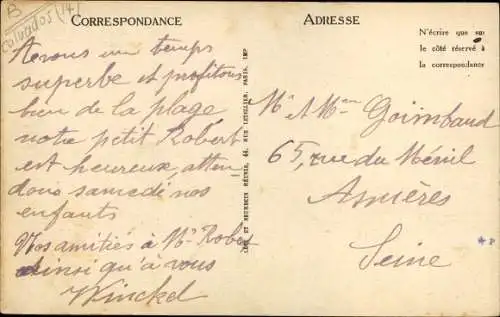 B
Calvados (14)
CORRESPONDANCE
Avons un temps
superbe et profitons
bien de la plage
notre petit Robert
est heureux, atten
dons samedi nos
enfants
Vos amitiés à Mr Robert
ainsi qu'à vous
Winckel
ADRESSE
N'écrire que sur
le côté réservé à
la correspondance
Mr et Mme Goimbaud
65, rue du Ménil
Asnières
Seine